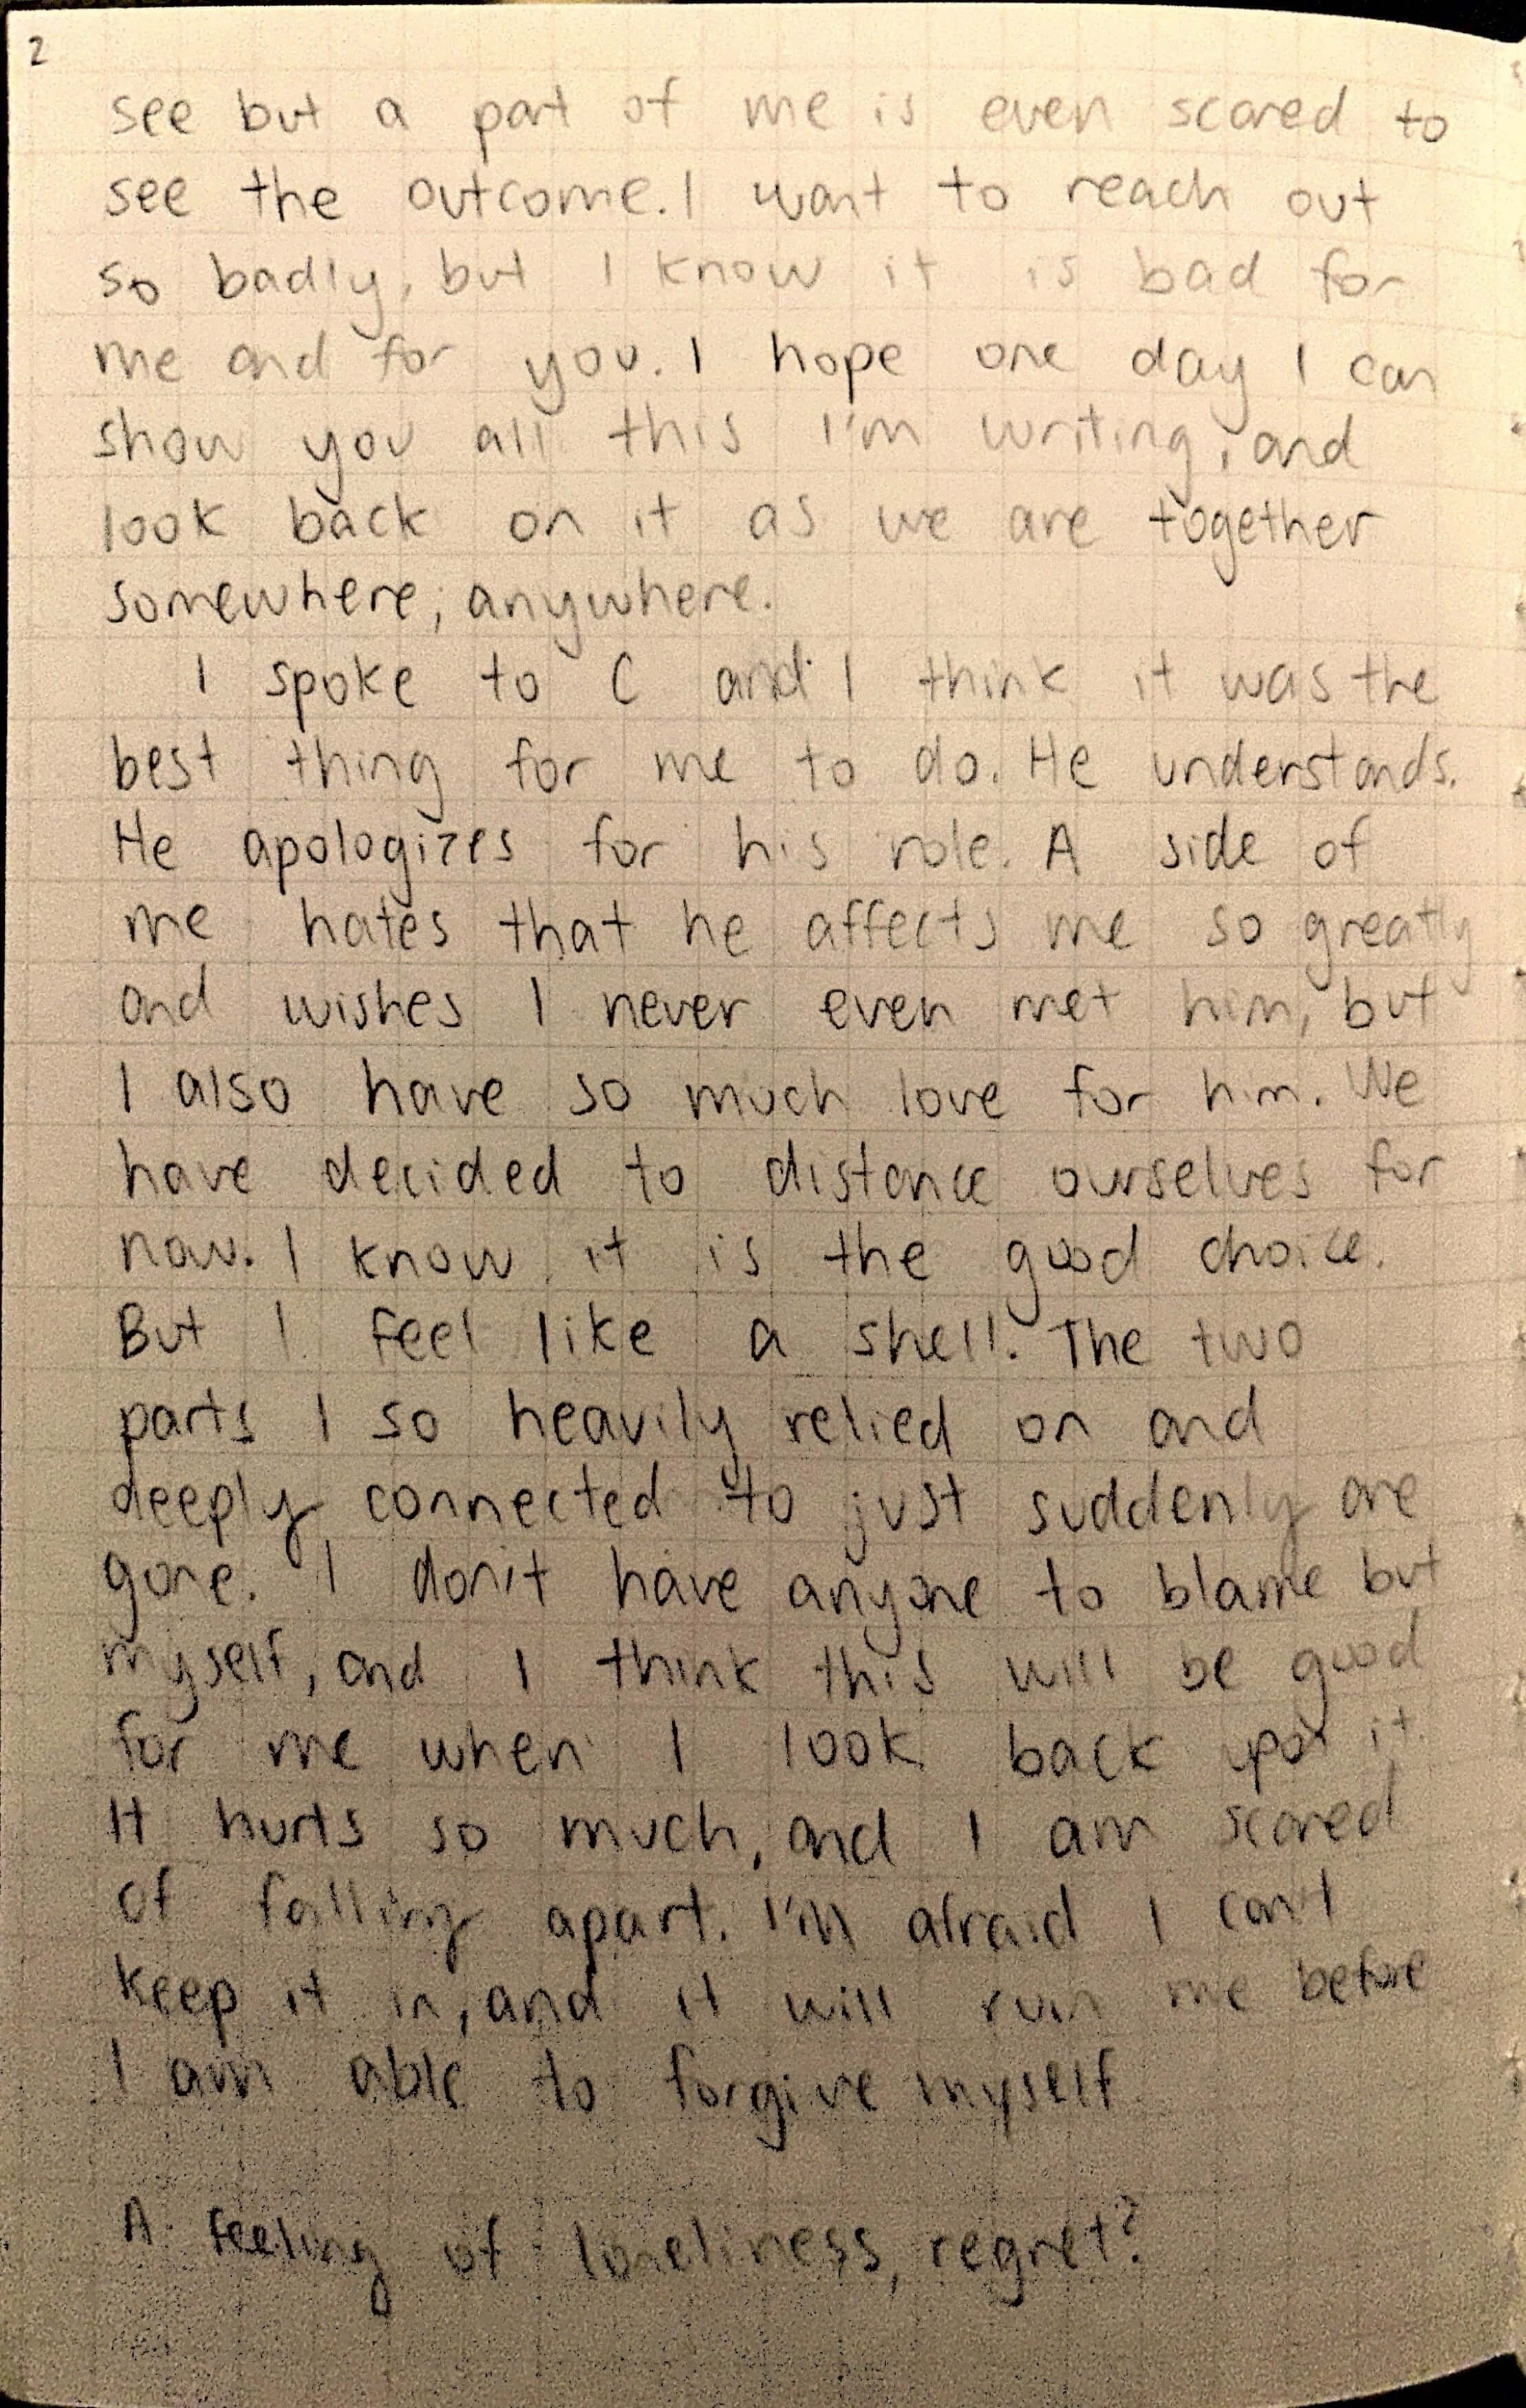 2
see but a part of me is even scared to
see the outcome. I want to reach out
so badly, but I know it is bad for
me and for you. I hope one day I can
show you all this I'm writing, and
look back on it as we are together
somewhere, anywhere.
I spoke to C and I think it was the
best thing for me to do. He understands.
He apologizes for his role. A side of
me hates that he affects me so greatly
and wishes I never even met him, but
I also have so much love for him. We
have decided to distance ourselves for
now. I know it is the good choice.
But I feel like a shell. The two
parts I so heavily relied on and
deeply connected to just suddenly are
gone. I don't have anyone to blame but
myself, and I think this will be good
for me when I look back upon it.
It hurts so much, and I am scared
of falling apart. I'm afraid I can't
keep it in, and it will ruin me before
I am able to forgive myself
A feeling of loneliness, regret?